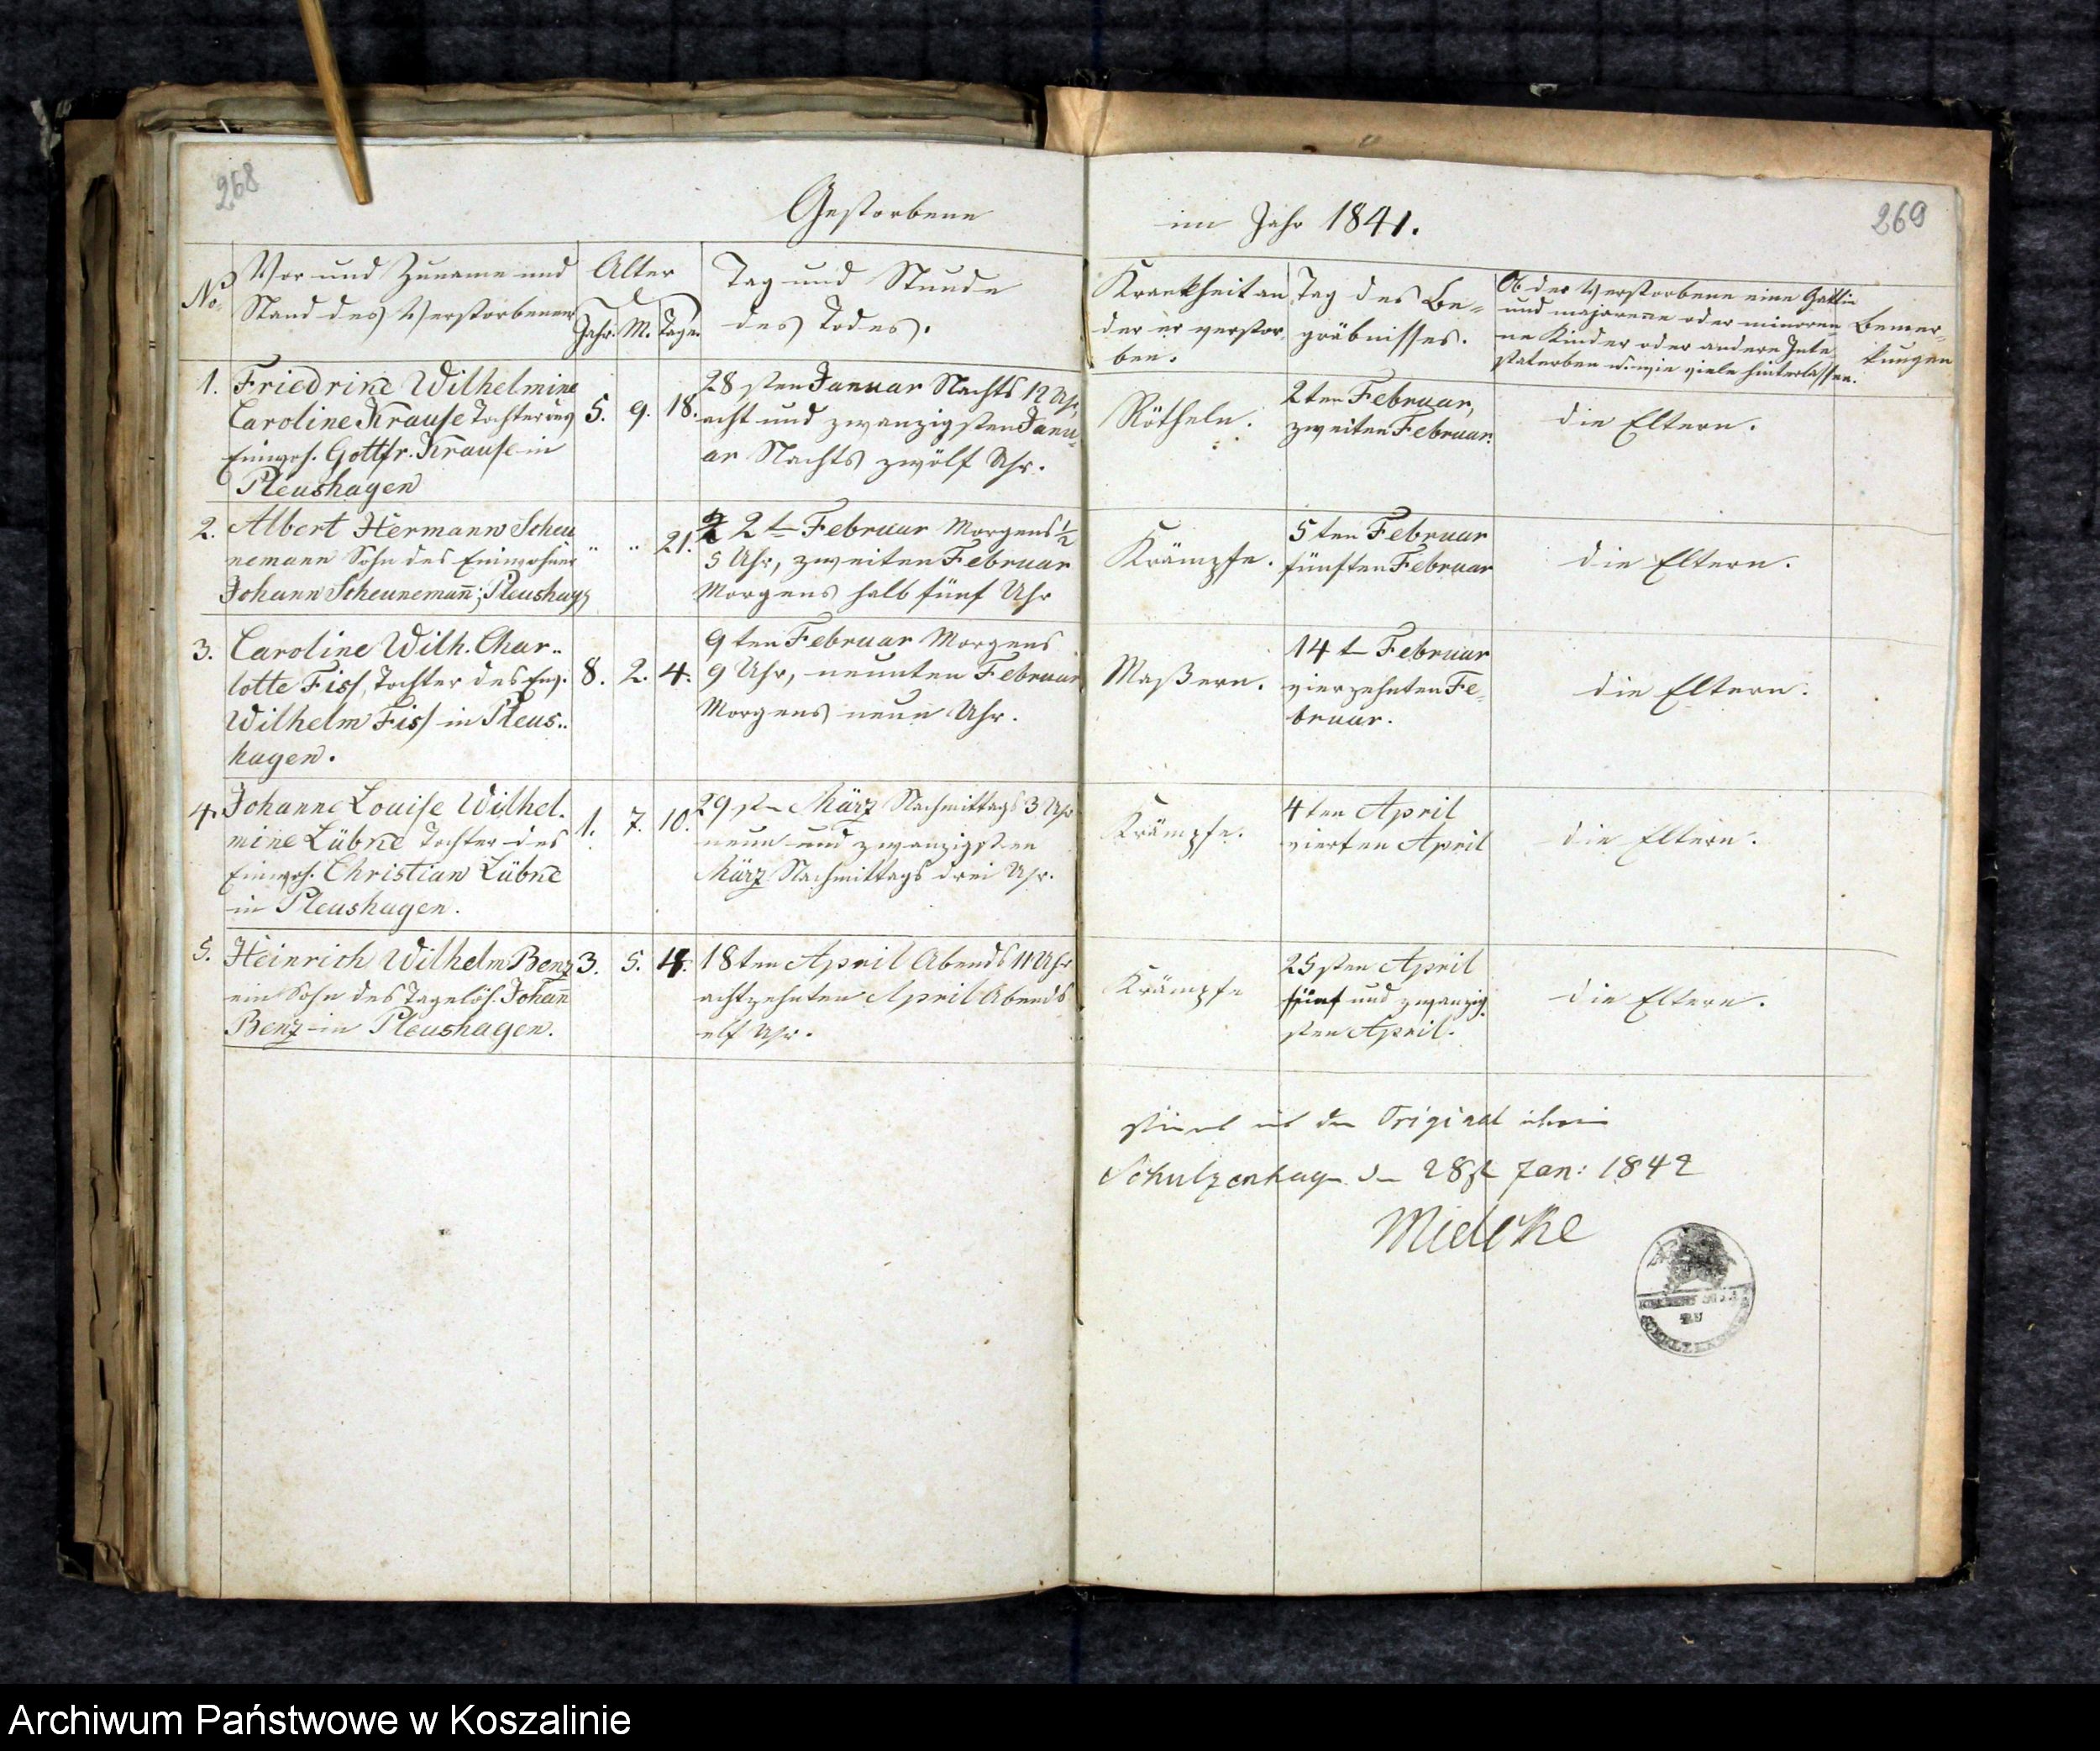 268
Gestorbene
No.
Vor und Zuname und
Stand des Verstorbenen
Alter
Jahr. M. Tage.
Tag und Stunde
des Todes.
1. Friedrike Wilhelmine
Caroline Krause Tochter des
Einwoh. Gottfr. Krause in
Pleushagen
5. 9. 18.
28sten Januar Nachts 12 Uhr,
acht und zwanzigsten Janu-
ar Nachts zwölf Uhr.
2. Albert Hermann Scheu
nemann Sohn des Einwohner
Johann Scheunemann; Pleushag
" " 21.
2t Februar Morgens 1/2
5 Uhr, zweiten Februar
Morgens halb fünf Uhr
3. Caroline Wilh. Char..
lotte Fiss, Tochter des Einw.
Wilhelm Fiss in Pleus..
hagen.
8. 2. 4.
9ten Februar Morgens
9 Uhr, neunten Februar
Morgens neun Uhr.
4. Johanne Louise Wilhel.
mine Lübke Tochter des
Einwoh. Christian Lübke
in Pleushagen.
1. 7. 10.
29st März Nachmittags 3 Uhr
neun und zwanzigsten
März Nachmittags drei Uhr.
5. Heinrich Wilhelm Benz
ein Sohn des Tagelöh. Johann
Benz in Pleushagen.
3. 5.
18ten April Abends 11 Uhr
achtzehnten April Abends
elf Uhr.
269
im Jahr 1841.
Krankheit an
der er verstor
ben.
Tag des Be-
gräbnisses.
Ob der Verstorbene eine Gattin
und majorenne oder minoren
ne Kinder oder andere Inte
staterben u. wie viele hinterlassen.
Bemer-
kungen
Rötheln.
2ten Februar,
zweiten Februar.
die Eltern.
Krämpfe.
5ten Februar
fünften Februar
die Eltern.
Maßern.
14t Februar
vierzehnten Fe-
bruar.
die Eltern.
Krämpfe.
4ten April
vierten April
die Eltern.
Krämpfe
25sten April
fünf und zwanzig.
sten April.
die Eltern.
stimmt mit dem Original überein
Schulzenhagen den 28st Jan: 1842
Mielcke
ZU
Archiwum Państwowe w Koszalinie